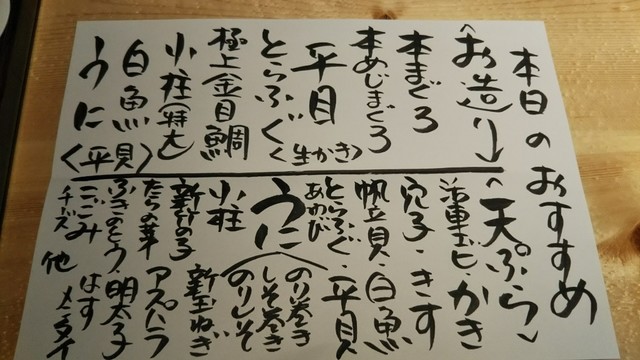 本日のおすすめ
〈お造り〉
本まぐろ
本めじまぐろ
平目(生かき)
とらふぐ
極上金目鯛
小柱(特大)
白魚
うに〈平貝〉
〈天ぷら〉
活車エビ・かき
穴子・きす
帆立貝・白魚
とらふぐ・平貝
あわび
うに(のり巻き
しそ巻き
のりしそ
小柱
新竹の子 新玉ねぎ
たらの芽 アスパラ
ふきのとう・明太子
こごみ はす
チーズ 他